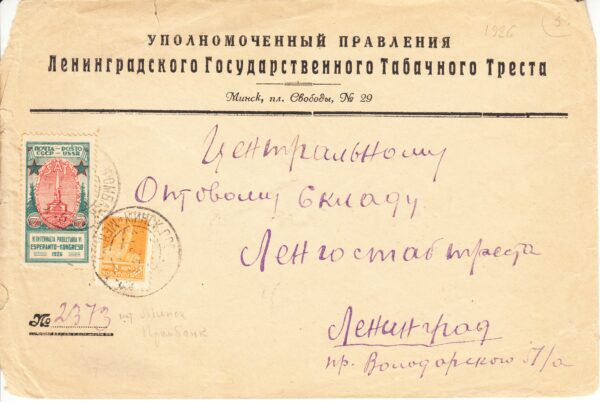 1926
УПОЛНОМОЧЕННЫЙ ПРАВЛЕНИЯ
Ленинградского Государственного Табачного Треста
Минск, пл. Свободы, № 29
Центральному
Оптовому Складу
Ленгостабтреста
Ленинград
пр. Володарского 51/а
ПОЧТА - POŜTO
СССР - USSR
ESPERANTO-KONGRESO
1926
№ 2373
Минск